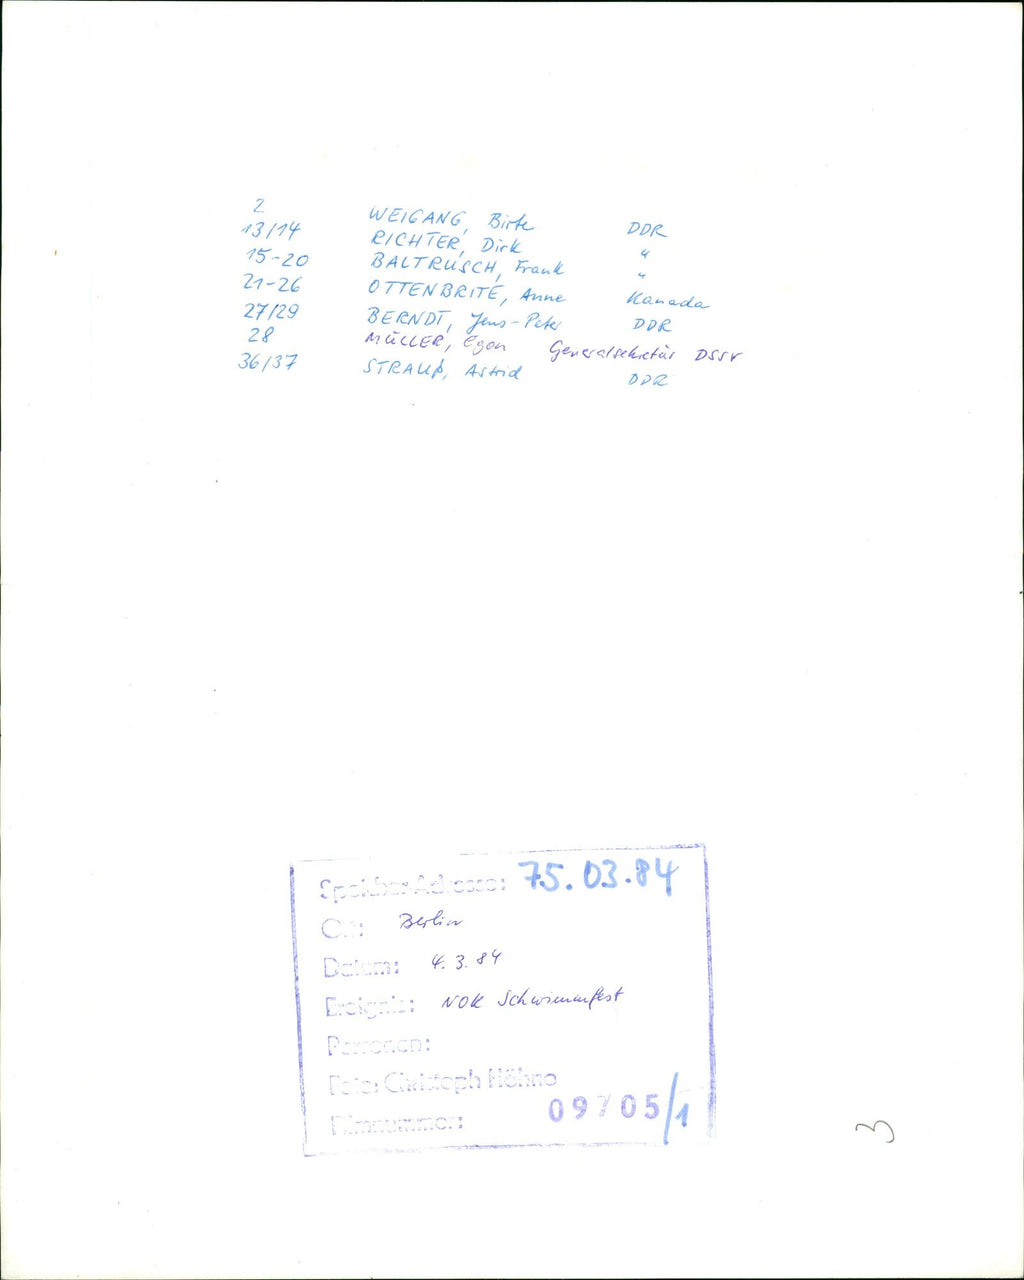 2 WEIGANG, Birte DDR
13/14 RICHTER, Dirk "
15-20 BALTRUSCH, Frank "
21-26 OTTENBRITE, Anne Kanada
27/29 BERNDT, Jens-Peter DDR
28 MÜLLER, Egon Generalsekretär DSSV
36/37 STRAUß, Astrid DDR
Speicher-Adresse: 75.03.84
Ort: Berlin
Datum: 4.3.84
Ereignis: NOK Schwimmfest
Personen:
Foto: Christoph Höhne
Filmnummer: 09705/1
3